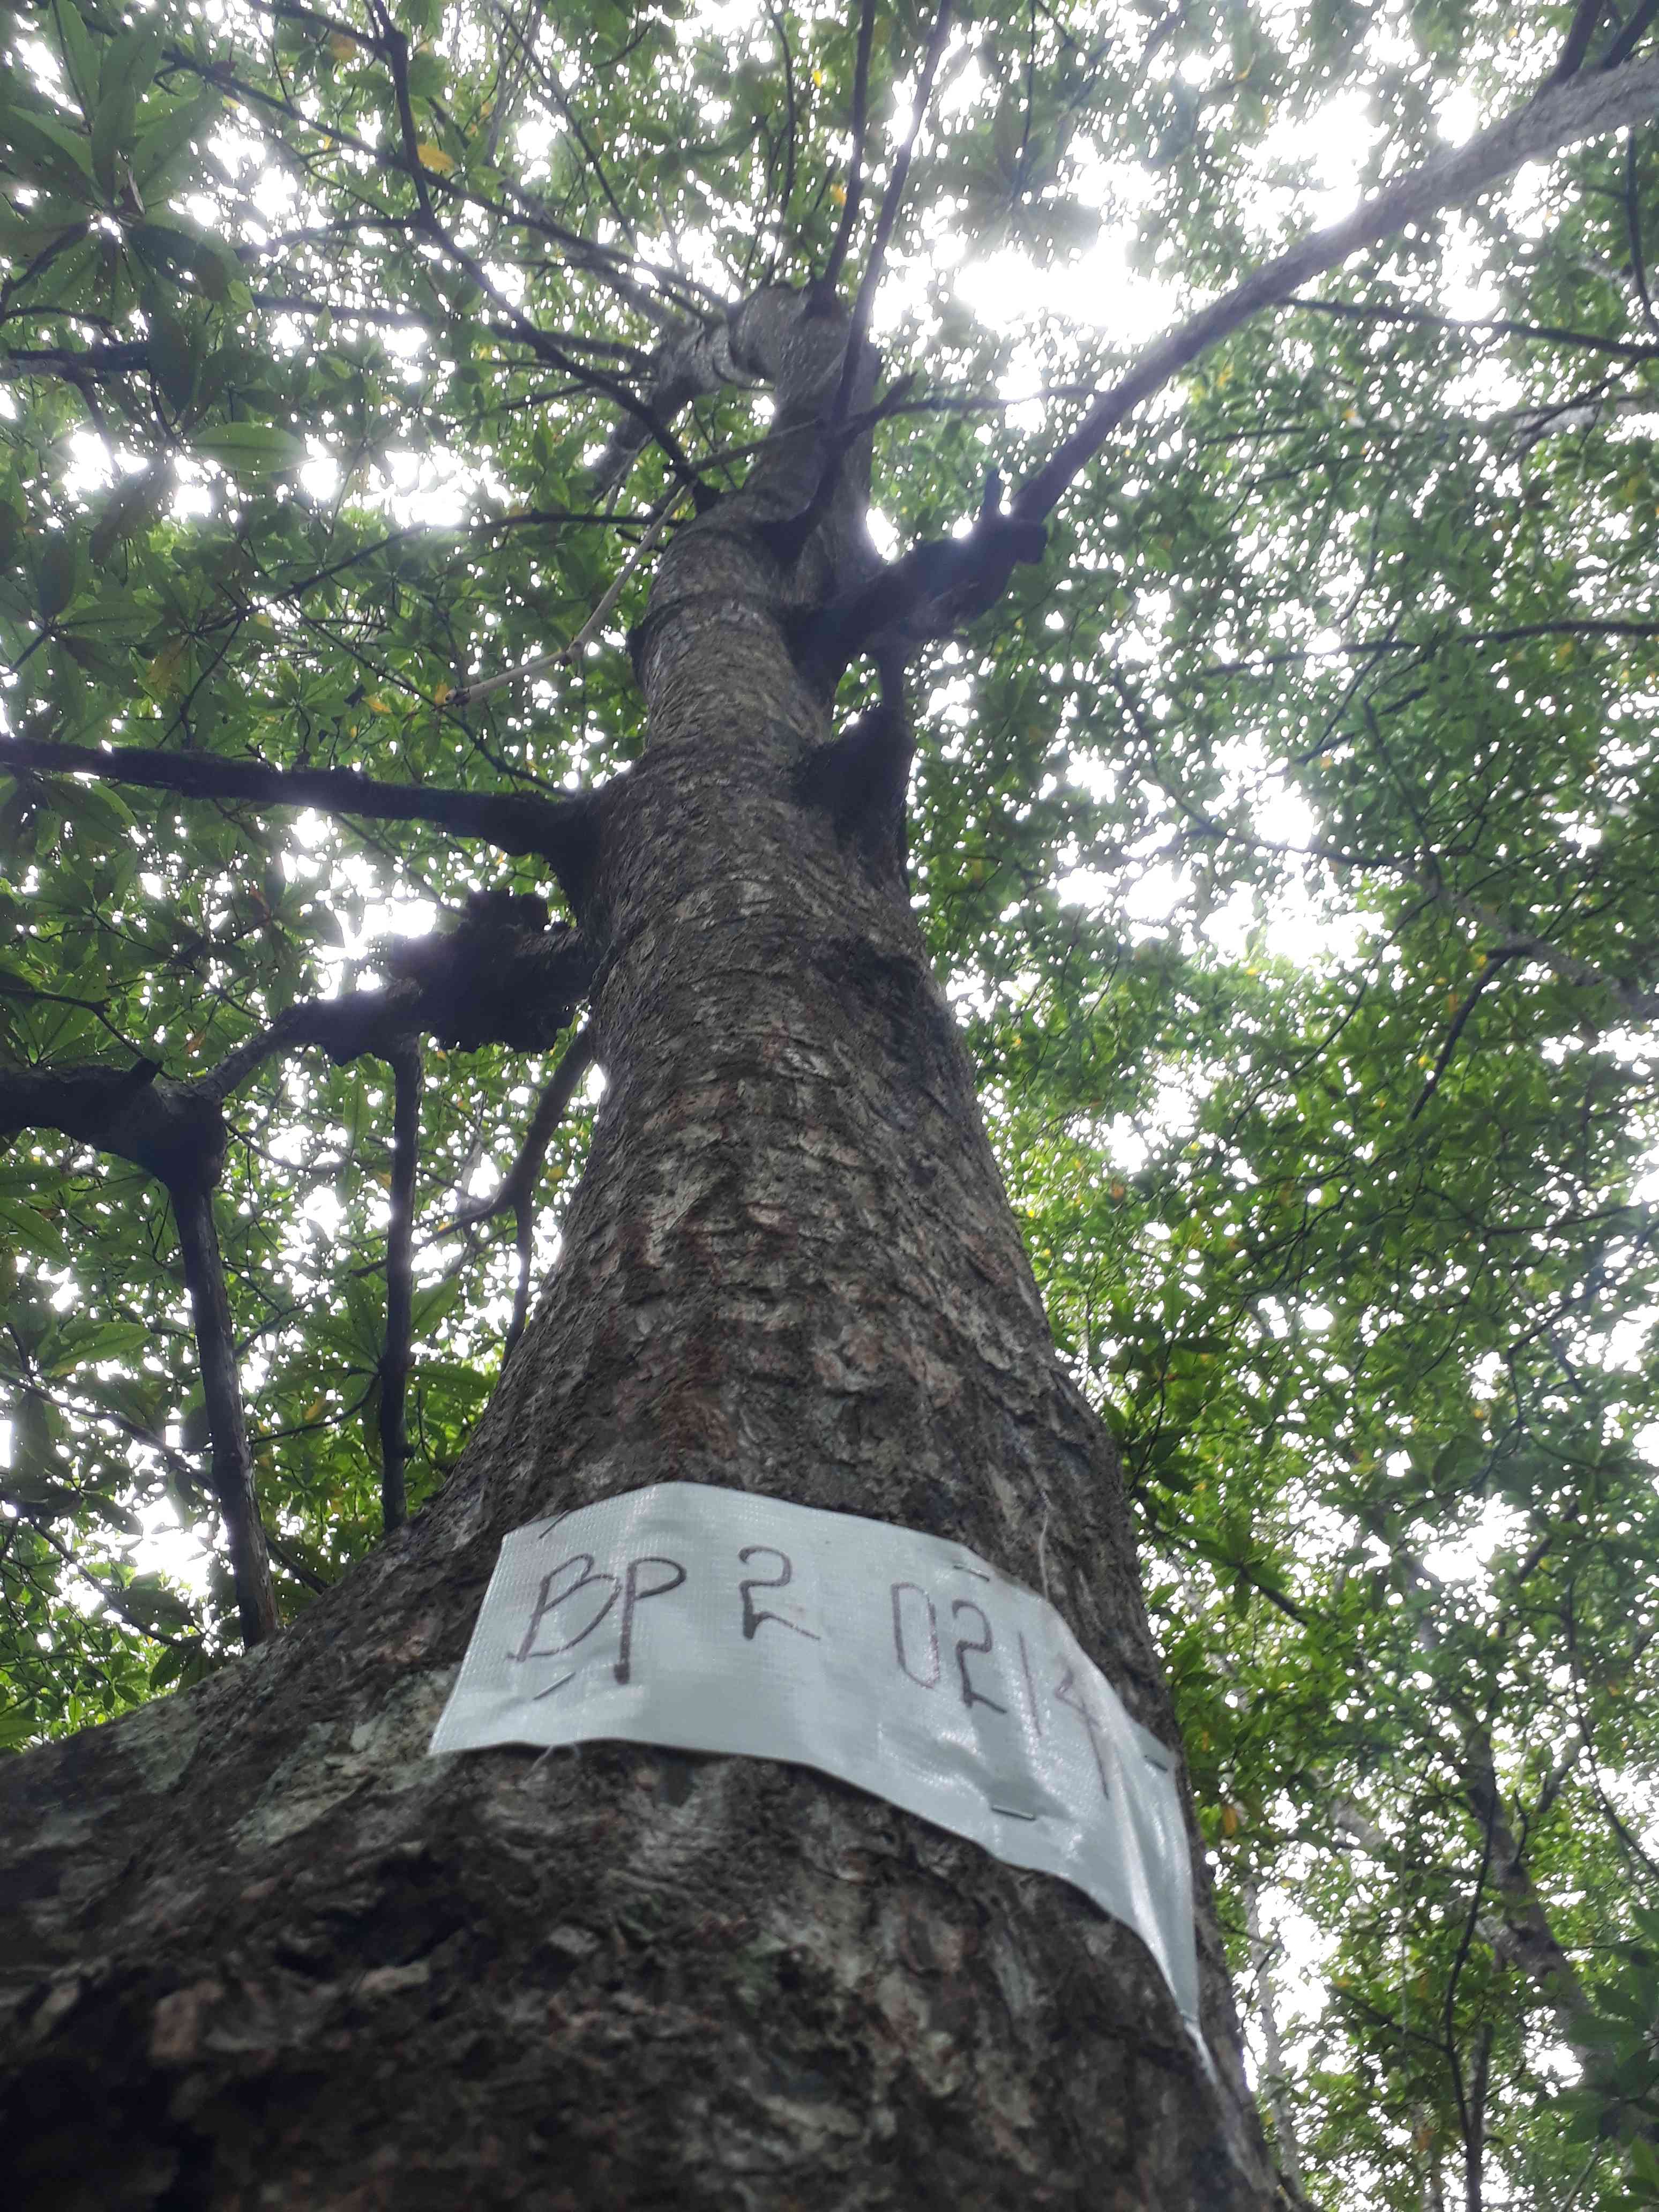 BP 2 0214